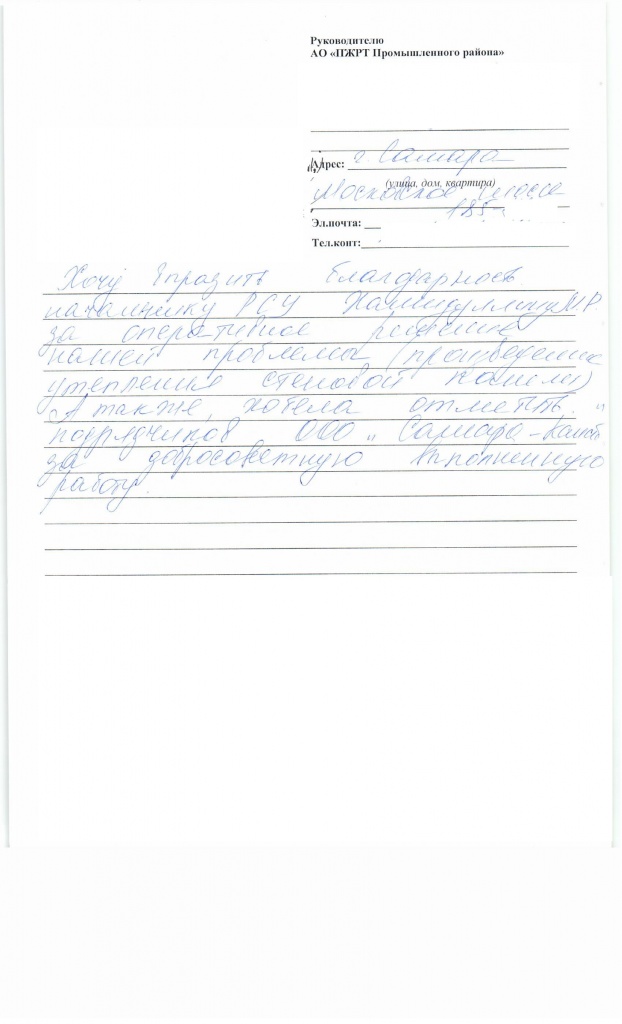 Руководителю
АО «ПЖРТ Промышленного района»
Адрес: г. Самара
(улица, дом, квартира)
Московское шоссе
Эл.почта:
Тел.конт:
Хочу выразить благодарность
начальнику РСУ М.Р.
за оперативное решение
нашей проблемы (произведение
утепления стеновой панели)
А также, хотела отметить
подрядчиков ООО „ Самара-
за добросовестную выполненную
работу.